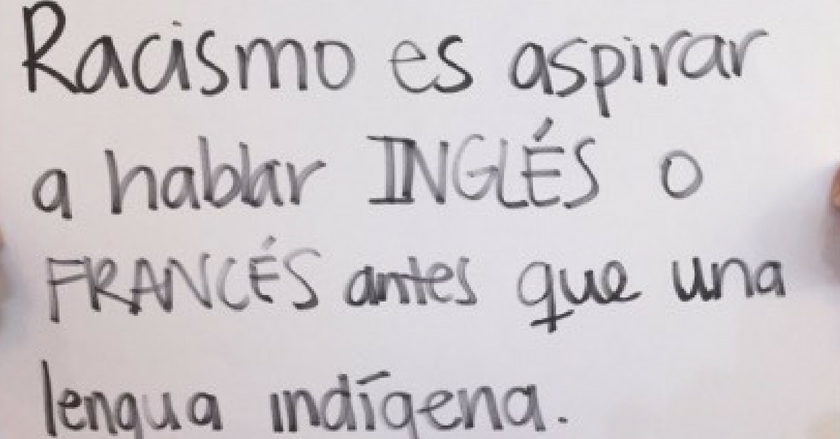 Racismo es aspirar
a hablar INGLÉS o
FRANCÉS antes que una
lengua indígena.